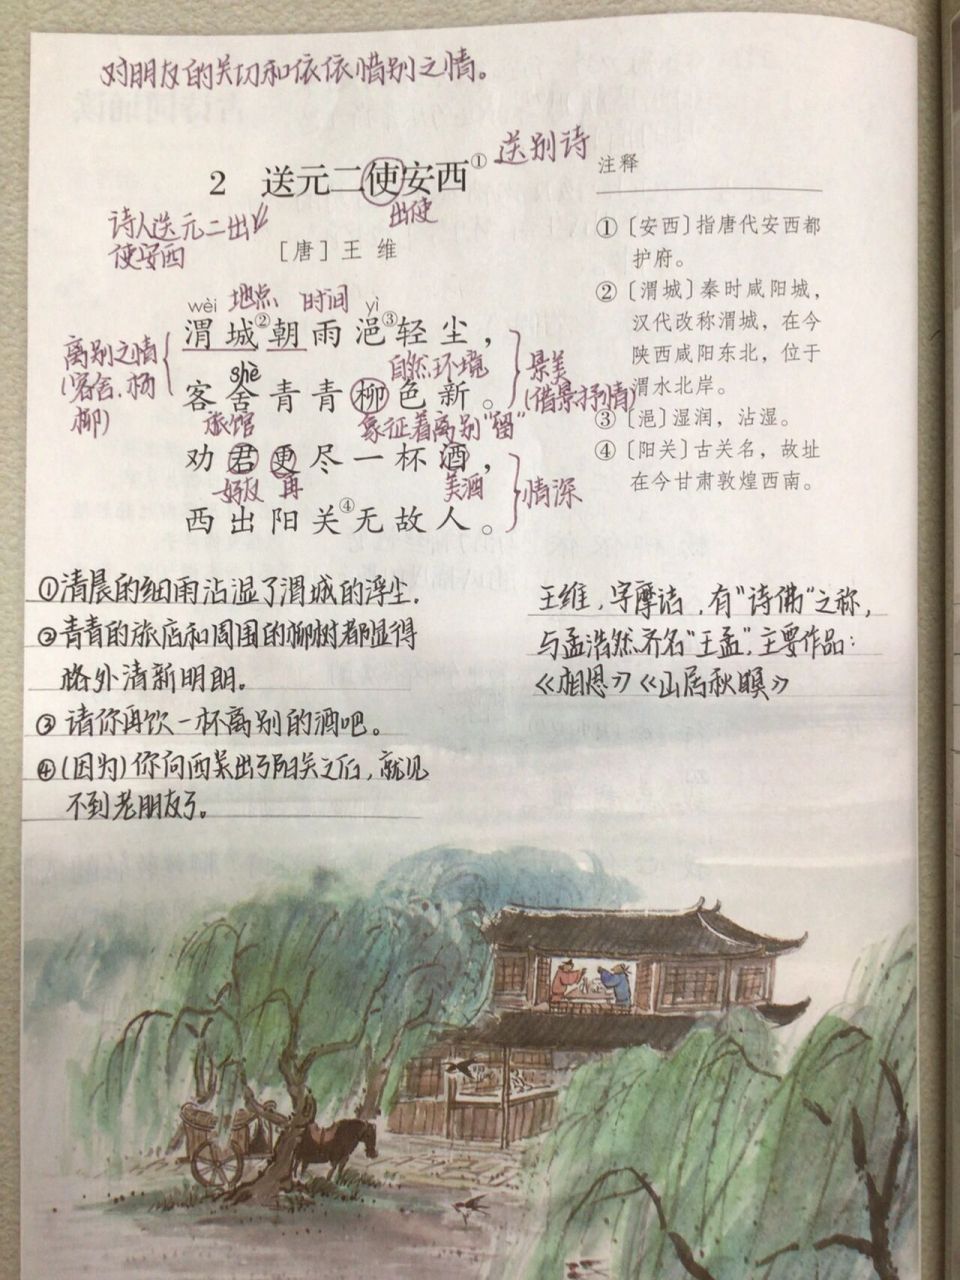 对朋友的关切和依依惜别之情。
送别诗
2 送元二使安西①
出使
诗人送元二出
使安西
[唐]王 维
wèi 地点 时间 yì
渭城②朝雨浥③轻尘，
离别之情
(客舍、杨
柳)
shè 自然环境
客舍青青柳色新。
旅馆 象征着离别"留"
景美
(借景抒情)
劝君更尽一杯酒，
好友 再 美酒
西出阳关④无故人。
情深
注释
①〔安西〕指唐代安西都
护府。
②〔渭城〕秦时咸阳城，
汉代改称渭城，在今
陕西咸阳东北，位于
渭水北岸。
③〔浥〕湿润，沾湿。
④〔阳关〕古关名，故址
在今甘肃敦煌西南。
①清晨的细雨沾湿了渭城的浮尘.
②青青的旅店和周围的柳树都显得
格外清新明朗。
③请你再饮一杯离别的酒吧。
④(因为)你向西关出了阳关之后，就见
不到老朋友了。
王维，字摩诘，有"诗佛"之称，
与孟浩然齐名"王孟"，主要作品：
《相思》《山居秋暝》